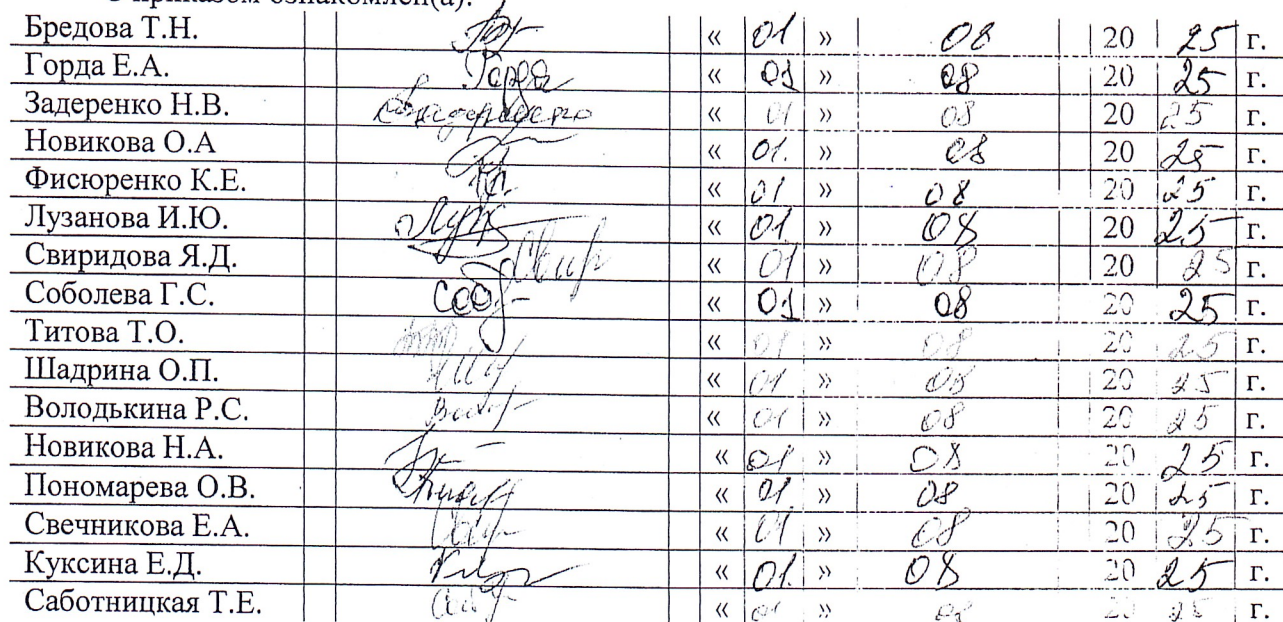 С приказом ознакомлен(а):
Бредова Т.Н. « 01 » 08 20 25 г.
Горда Е.А. Горда « 01 » 08 20 25 г.
Задеренко Н.В. « 01 » 08 20 25 г.
Новикова О.А « 01. » 08 20 25 г.
Фисюренко К.Е. « 01 » 08 20 25 г.
Лузанова И.Ю. « 01 » 08 20 25 г.
Свиридова Я.Д. Свир « 01 » 08 20 25 г.
Соболева Г.С. Соб « 01 » 08 20 25 г.
Титова Т.О. « 01 » 08 20 25 г.
Шадрина О.П. « 01 » 08 20 25 г.
Володькина Р.С. « 01 » 08 20 25 г.
Новикова Н.А. « 01 » 08 20 25 г.
Пономарева О.В. « 01 » 08 20 25 г.
Свечникова Е.А. « 01 » 08 20 25 г.
Куксина Е.Д. « 01. » 08 20 25 г.
Саботницкая Т.Е. « 01 » 08 20 25 г.